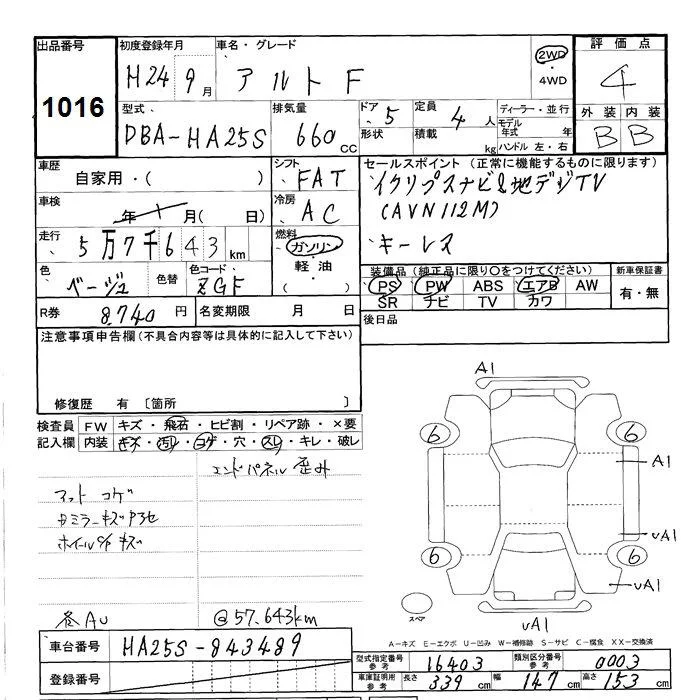 出品番号 初度登録年月 車名・グレード 2WD ・4WD 評価点
1016 H24 9月 アルト F 4
型式 DBA-HA25S 排気量 660cc ドア・形状 5 定員 4人 積載 kg ディーラー・並行 モデル年式 年 ハンドル 左・右 外装 内装
B B
車歴 自家用・( ) シフト FAT セールスポイント (正常に機能するものに限ります)
車検 年 月(日) 冷房 AC イクリプスナビ&地デジTV
(AVN112M)
走行 5万7千643km 燃料 ガソリン・軽油・( ) キーレス
色 ベージュ 色替 色コード ZGF 装備品 (純正品に限り○をつけてください) 新車保証書
PS PW ABS エアB AW 有・無
SR ナビ TV カワ
R券 8,740円 名変期限 月 日 後日品
注意事項申告欄(不具合内容等は具体的に記入して下さい)
修復歴 有 [箇所 ]
検査員記入欄 FW キズ・飛石・ヒビ割・リペア跡・×要
内装 キズ・汚レ・コゲ・穴・スレ・キレ・破レ
エンドパネル 歪み
マット コゲ
ホイール キズ
各AU @57.643km
A1
6 6
A1
uA1
6 6
uA1
スペア uA1
A-キズ E-エクボ U-凹み W-補修跡 S-サビ C-腐食 XX-交換済
車台番号 HA25S-843489
登録番号
型式指定番号 参考 16403 類別区分番号 参考 0003
車庫証明用 参考 長さ 339cm 幅 147cm 高さ 153cm